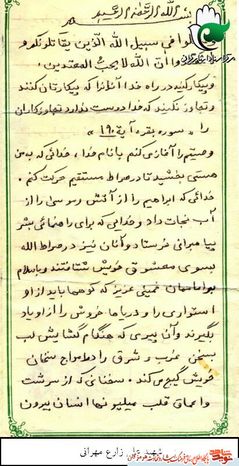 بسم الله الرحمن الرحیم
قاتلوا فی سبیل الله الذین یقاتلونکم و
لا تعتدوا ان الله لا یحب المعتدین.
و پیکار کنید در راه خدا آنان را که پیکارتان کنند
و تجاوز نکنید که خدا دوست ندارد تجاوزکاران
را « سوره بقره آیه ۱۹۰ »
وصیتم را آغاز می کنم با نام خدا ، خدائی که به من
هستی بخشید تا در صراط مستقیم حرکت کنم .
خدائی که ابراهیم را از آتش و موسی را از
آب نجات داد و خدائی که برای راهنمائی بشر
پیامبرانی فرستاد و آنان نیز در صراط الله
بسوی معشوق خویش شتافتند و با سلام
بر امام خمینی عزیز که کوهها باید از او
استواری را و دریاها خروش را از او یاد
بگیرند و آن پیری که هنگام گشایش لب
بسخن غرب و شرق را در امواج سخنان
خویش گیج می کند . سخنانی که از سرشت
و اعماق قلب میلیونها انسان بیرون
شهید علی زارع مهرانی